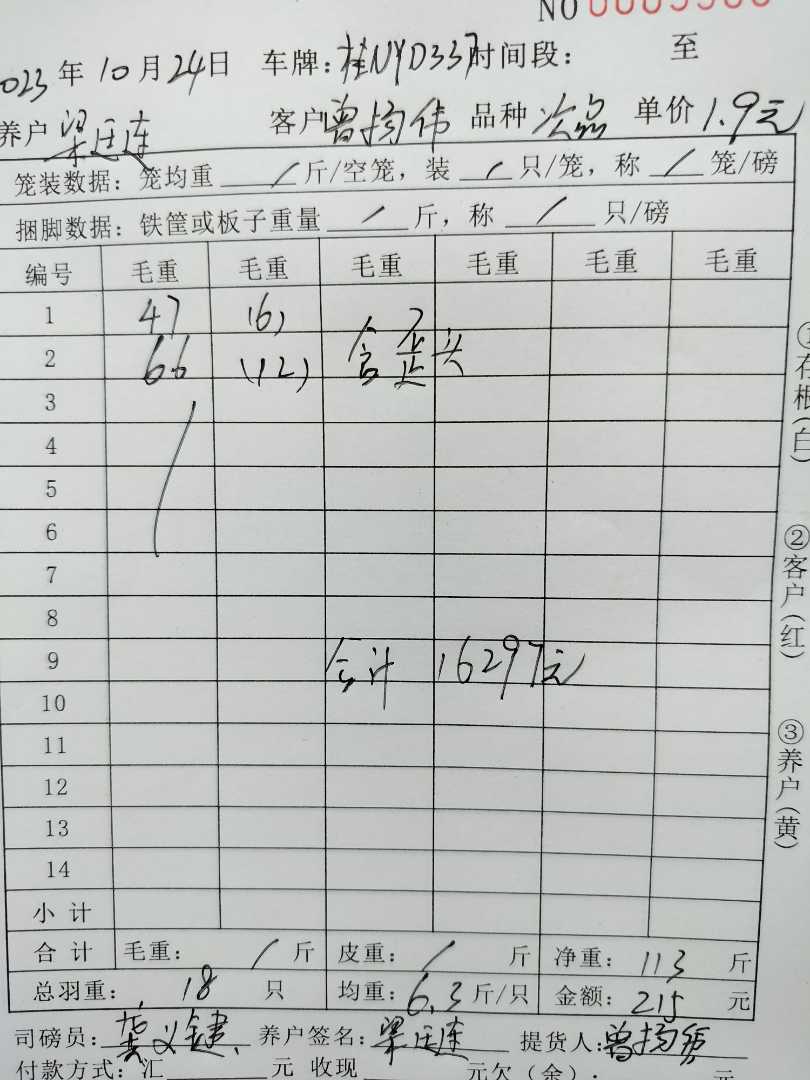 NO 0005906
2023 年 10 月 24 日 车牌：桂NYD337 时间段： 至
养户 梁廷连 客户 曾扬伟 品种 次品 单价 1.9元
笼装数据：笼均重 / 斤/空笼，装 / 只/笼，称 / 笼/磅
捆脚数据：铁筐或板子重量 / 斤，称 / 只/磅
编号 毛重 毛重 毛重 毛重 毛重 毛重
1 47 (6)
2 66 (12) 含歪头
3
4
5
6
7
8
9 合计 16297元
10
11
12
13
14
小计
合计 毛重： / 斤 皮重： / 斤 净重： 113 斤
总羽重： 18 只 均重： 6.3 斤/只 金额： 215 元
司磅员： 龚义健 养户签名： 梁廷连 提货人： 曾扬伟
付款方式：汇 元 收现 元欠（余）： 元
①存根（白） ②客户（红） ③养户（黄）